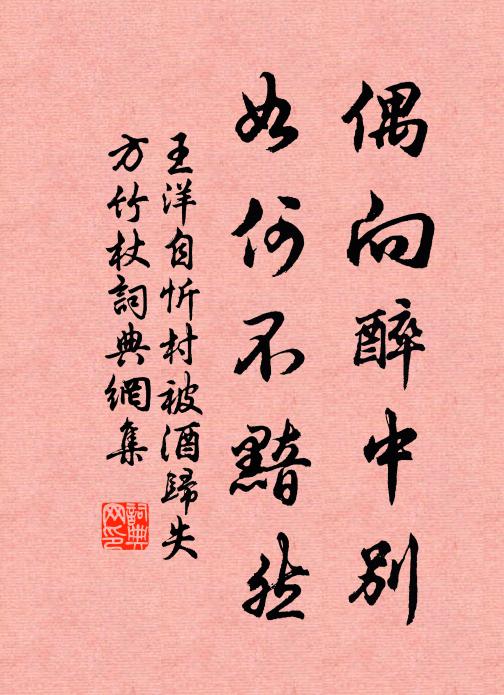 偶向醉中別
如何不黯然
王洋自忻村被酒歸失
方竹杖詞典網集
詞典
网印